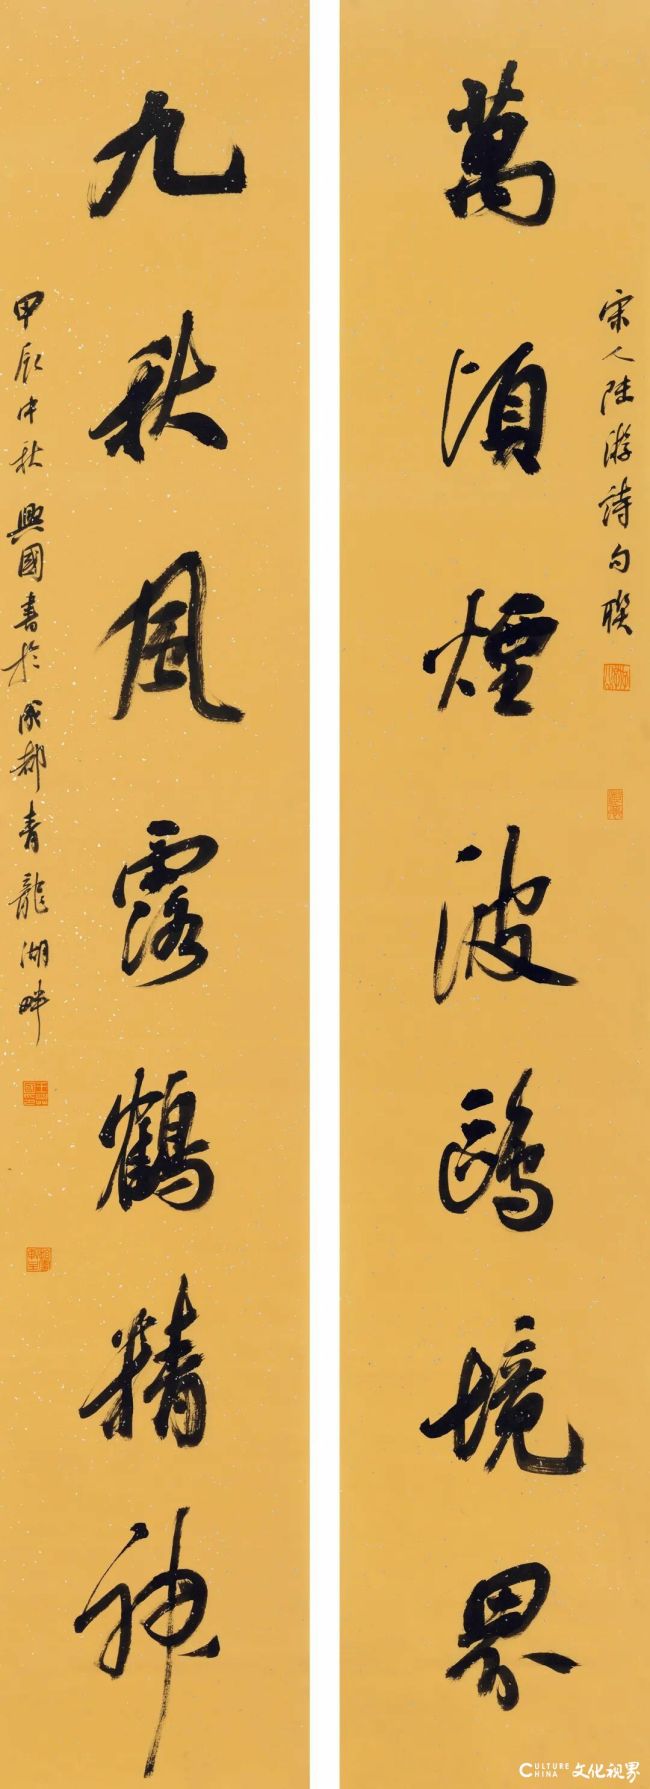 宋人陆游诗句联
萬頃煙波鷗境界
九秋風露鶴精神
甲辰中秋興國書於成都青龍湖畔
CULTURE CHINA 文化视界